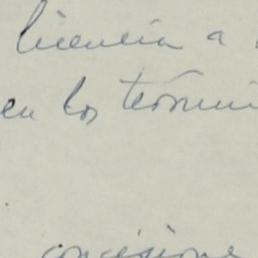 licencia a
en los términ
concesione